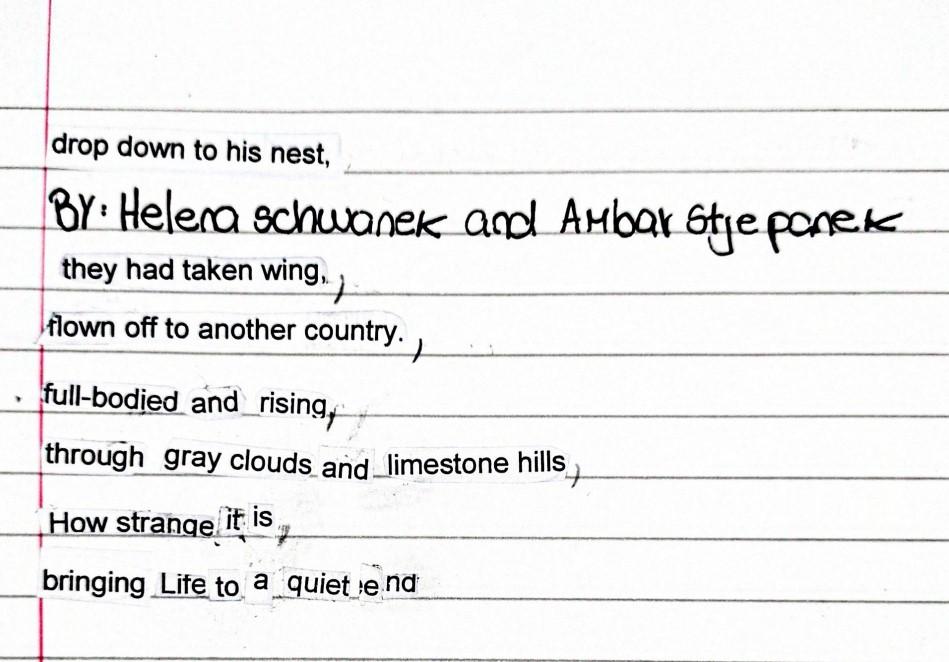 drop down to his nest,
BY: Helena schwanek and Ambar Stjepanek
they had taken wing, ,
flown off to another country. ,
full-bodied and rising,
through gray clouds and limestone hills,
How strange it is,
bringing Life to a quiet end